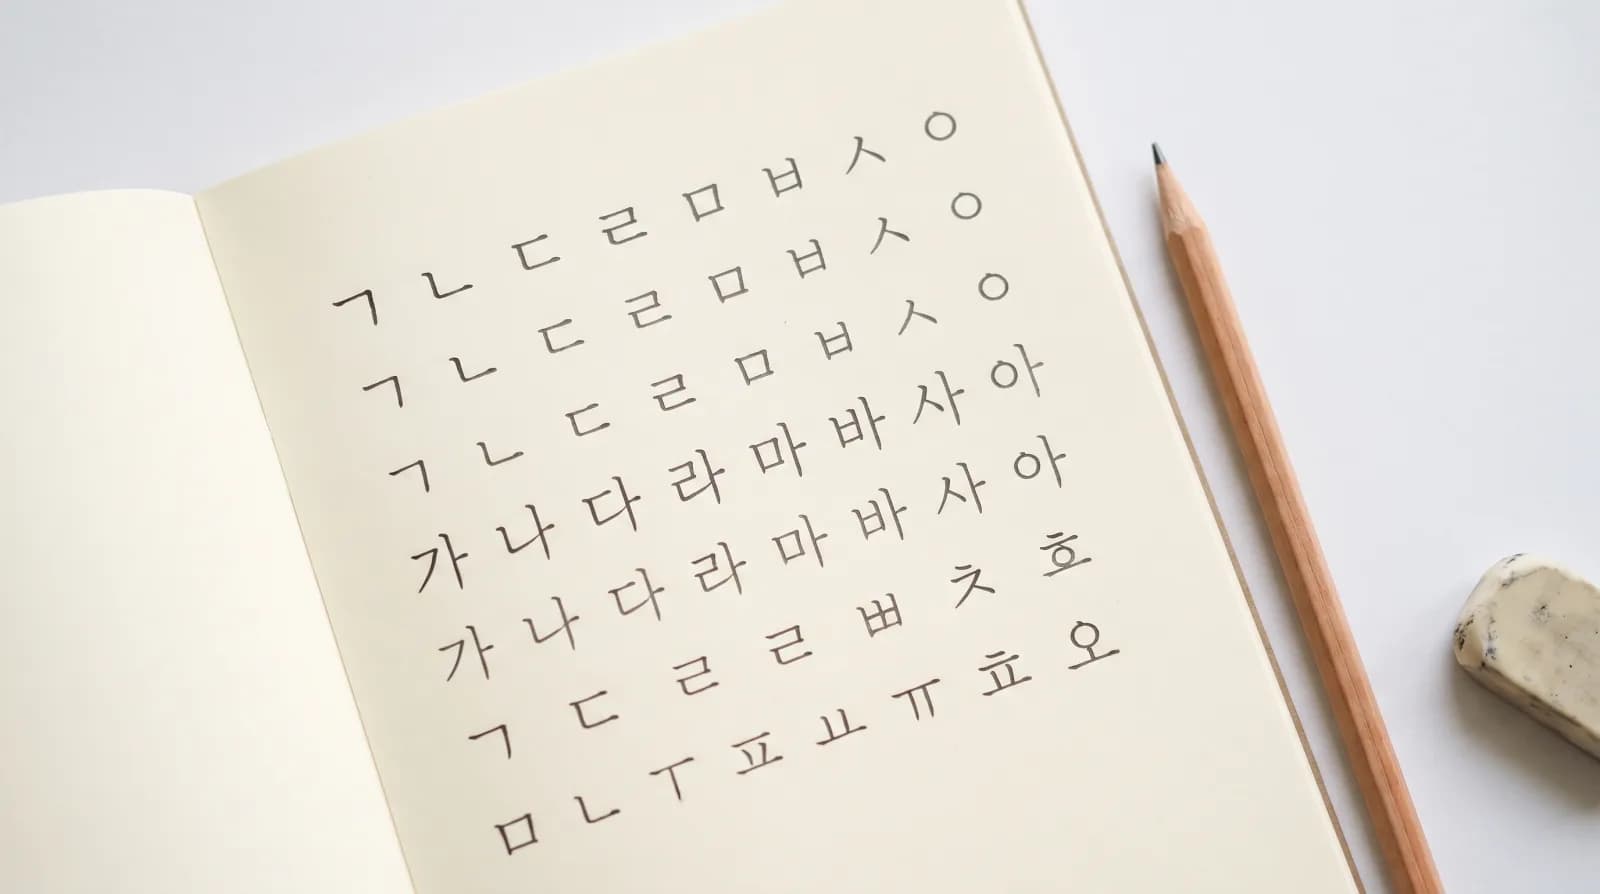 ㄱ ㄴ ㄷ ㄹ ㅁ ㅂ ㅅ ㅇ
ㄱ ㄴ ㄷ ㄹ ㅁ ㅂ ㅅ ㅇ
ㄱ ㄴ ㄷ ㄹ ㅁ ㅂ ㅅ ㅇ
가 나 다 라 마 바 사 아
가 나 다 라 마 바 사 아
ㄱ ㄷ ㄹ ㄹ ㅊ 호
ㅁ ㄴ ㅜ ㅛ ㅠ 오